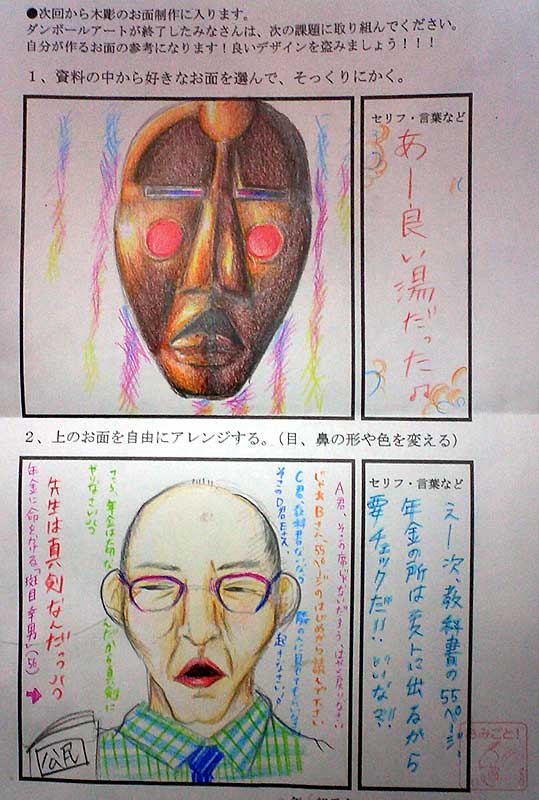 ●次回から木彫のお面制作に入ります。
ダンボールアートが終了したみなさんは、次の課題に取り組んでください。
自分が作るお面の参考になります!良いデザインを盗みましょう!!!
1、資料の中から好きなお面を選んで、そっくりにかく。
セリフ・言葉など
あー良い湯だった♫
2、上のお面を自由にアレンジする。(目、鼻の形や色を変える)
セリフ・言葉など
えー次、教科書の55ページ。
年金の所はテストに出るから
要チェックだ!! いいな?!!
A君、そこの席じゃないだろう、はやく戻りなさい
じゃあBさん、55ページのはじめから読んで下さい
C君、教科書ないなら 隣の人に見せてもらいなさい
そこのD君Eさん、起きなさい!!
先生は真剣なんだっっ!!
年金に命をかける「斑目幸男」(56)
公民